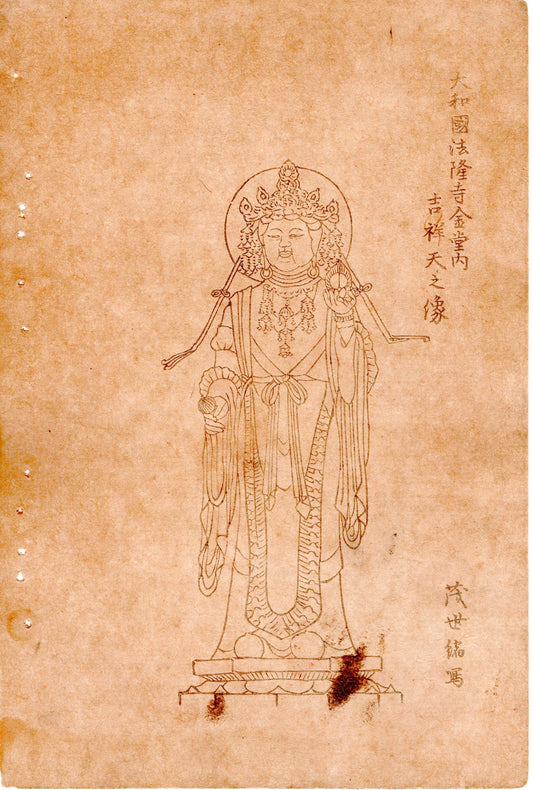 大和國法隆寺金堂内
吉祥天之像
茂世縮寫